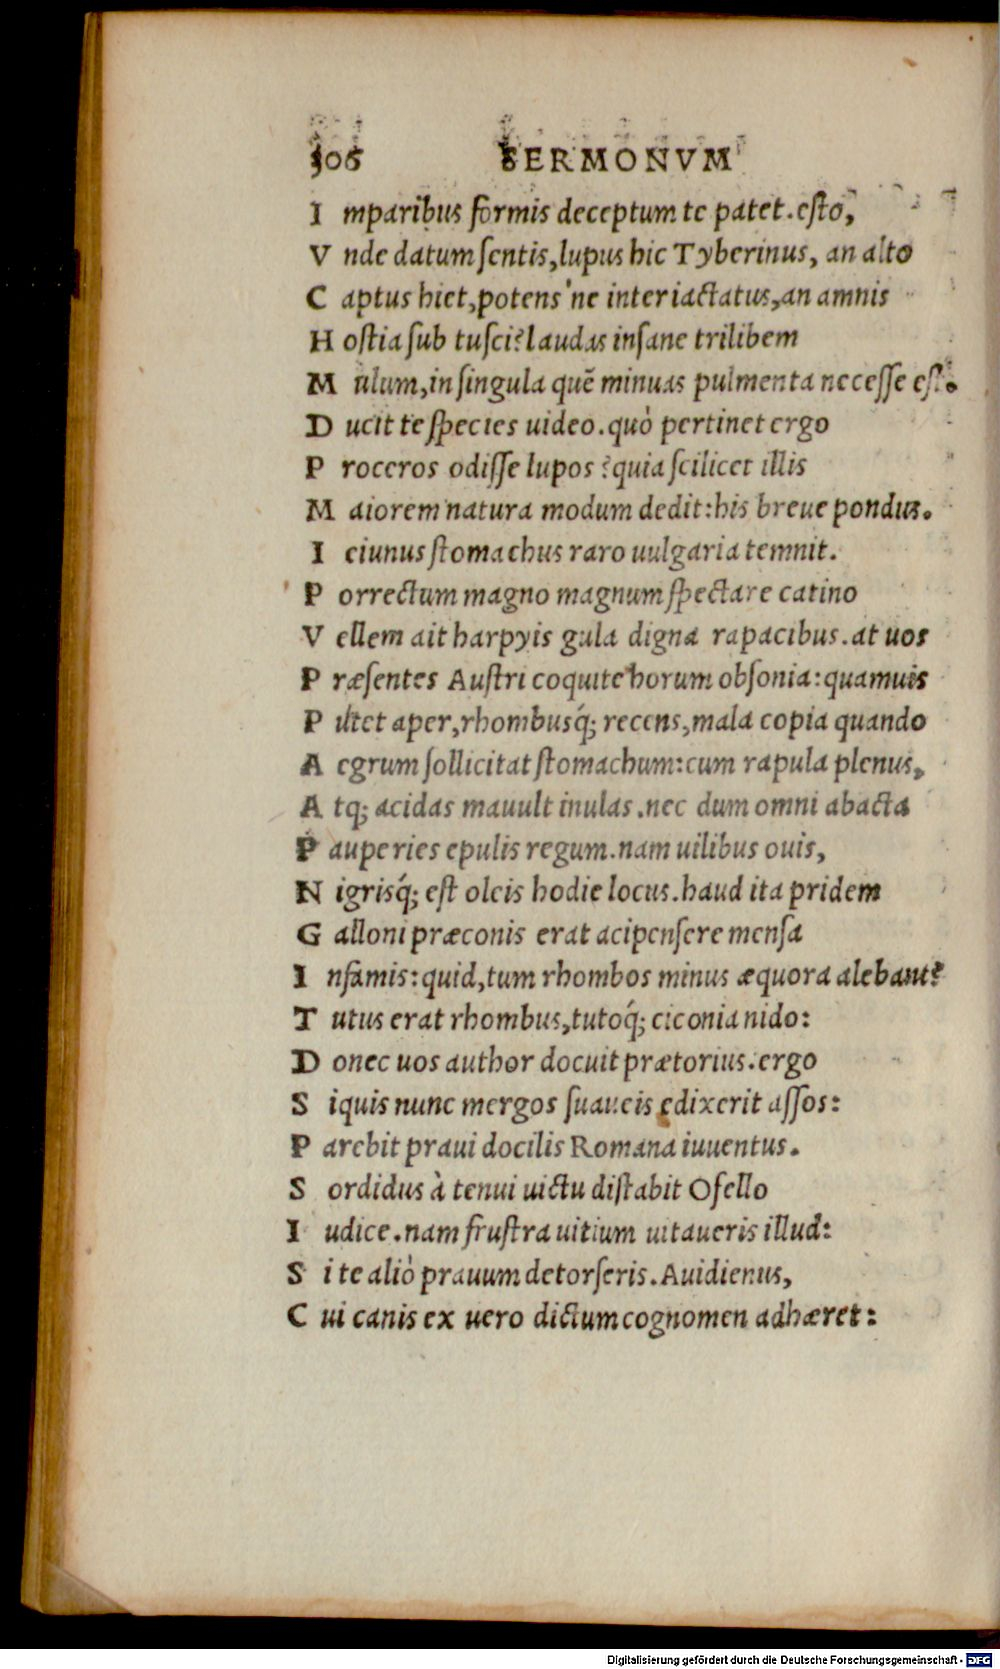 306 SERMONVM
I mparibus formis deceptum te patet. esto,
V nde datum sentis, lupus hic Tyberinus, an alto
C aptus hiet, potens'ne interiactatus, an amnis
H ostia sub tusci? laudas insane trilibem
M ulum, in singula quē minuas pulmenta necesse est.
D ucit te species uideo. quò pertinet ergo
P roceros odisse lupos? quia scilicet illis
M aiorem natura modum dedit: his breue pondus.
I eiunus stomachus raro uulgaria temnit.
P orrectum magno magnum spectare catino
V ellem ait harpyis gula digna rapacibus. at uos
P ræsentes Austri coquite horum obsonia: quamuis
P utet aper, rhombusq́; recens, mala copia quando
A egrum sollicitat stomachum: cum rapula plenus,
A tq; acidas mauult inulas. nec dum omni abacta
P auperies epulis regum. nam uilibus ouis,
N igrisq́; est oleis hodie locus. haud ita pridem
G alloni præconis erat acipensere mensa
I nfamis: quid, tum rhombos minus æquora alebant?
T utus erat rhombus, tutoq́; ciconia nido:
D onec uos author docuit prætorius. ergo
S iquis nunc mergos suaueis edixerit assos:
P arebit praui docilis Romana iuuentus.
S ordidus à tenui uictu distabit Ofello
I udice. nam frustra uitium uitaueris illud:
S i te aliò prauum detorseris. Auidienus,
C ui canis ex uero dictum cognomen adhæret:
Digitalisierung gefördert durch die Deutsche Forschungsgemeinschaft - DFG